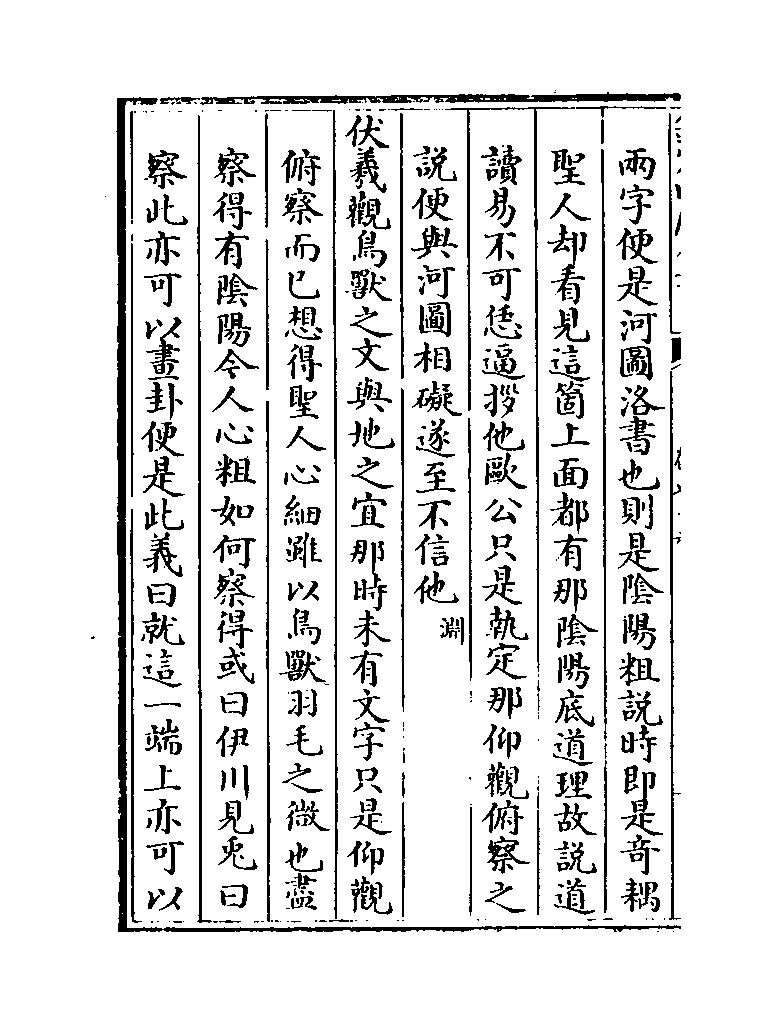 兩字便是河圖洛書也則是陰陽粗說時即是竒耦
聖人却看見這箇上面都有那陰陽底道理故說道
讀易不可恁逼拶他歐公只是執定那仰觀俯察之
説便與河圖相礙遂至不信他淵
伏羲觀鳥獸之文與地之宜那時未有文字只是仰觀
俯察而已想得聖人心細雖以鳥獸羽毛之微也盡
察得有陰陽今人心粗如何察得或曰伊川見兎曰
察此亦可以畫卦便是此義曰就這一端上亦可以